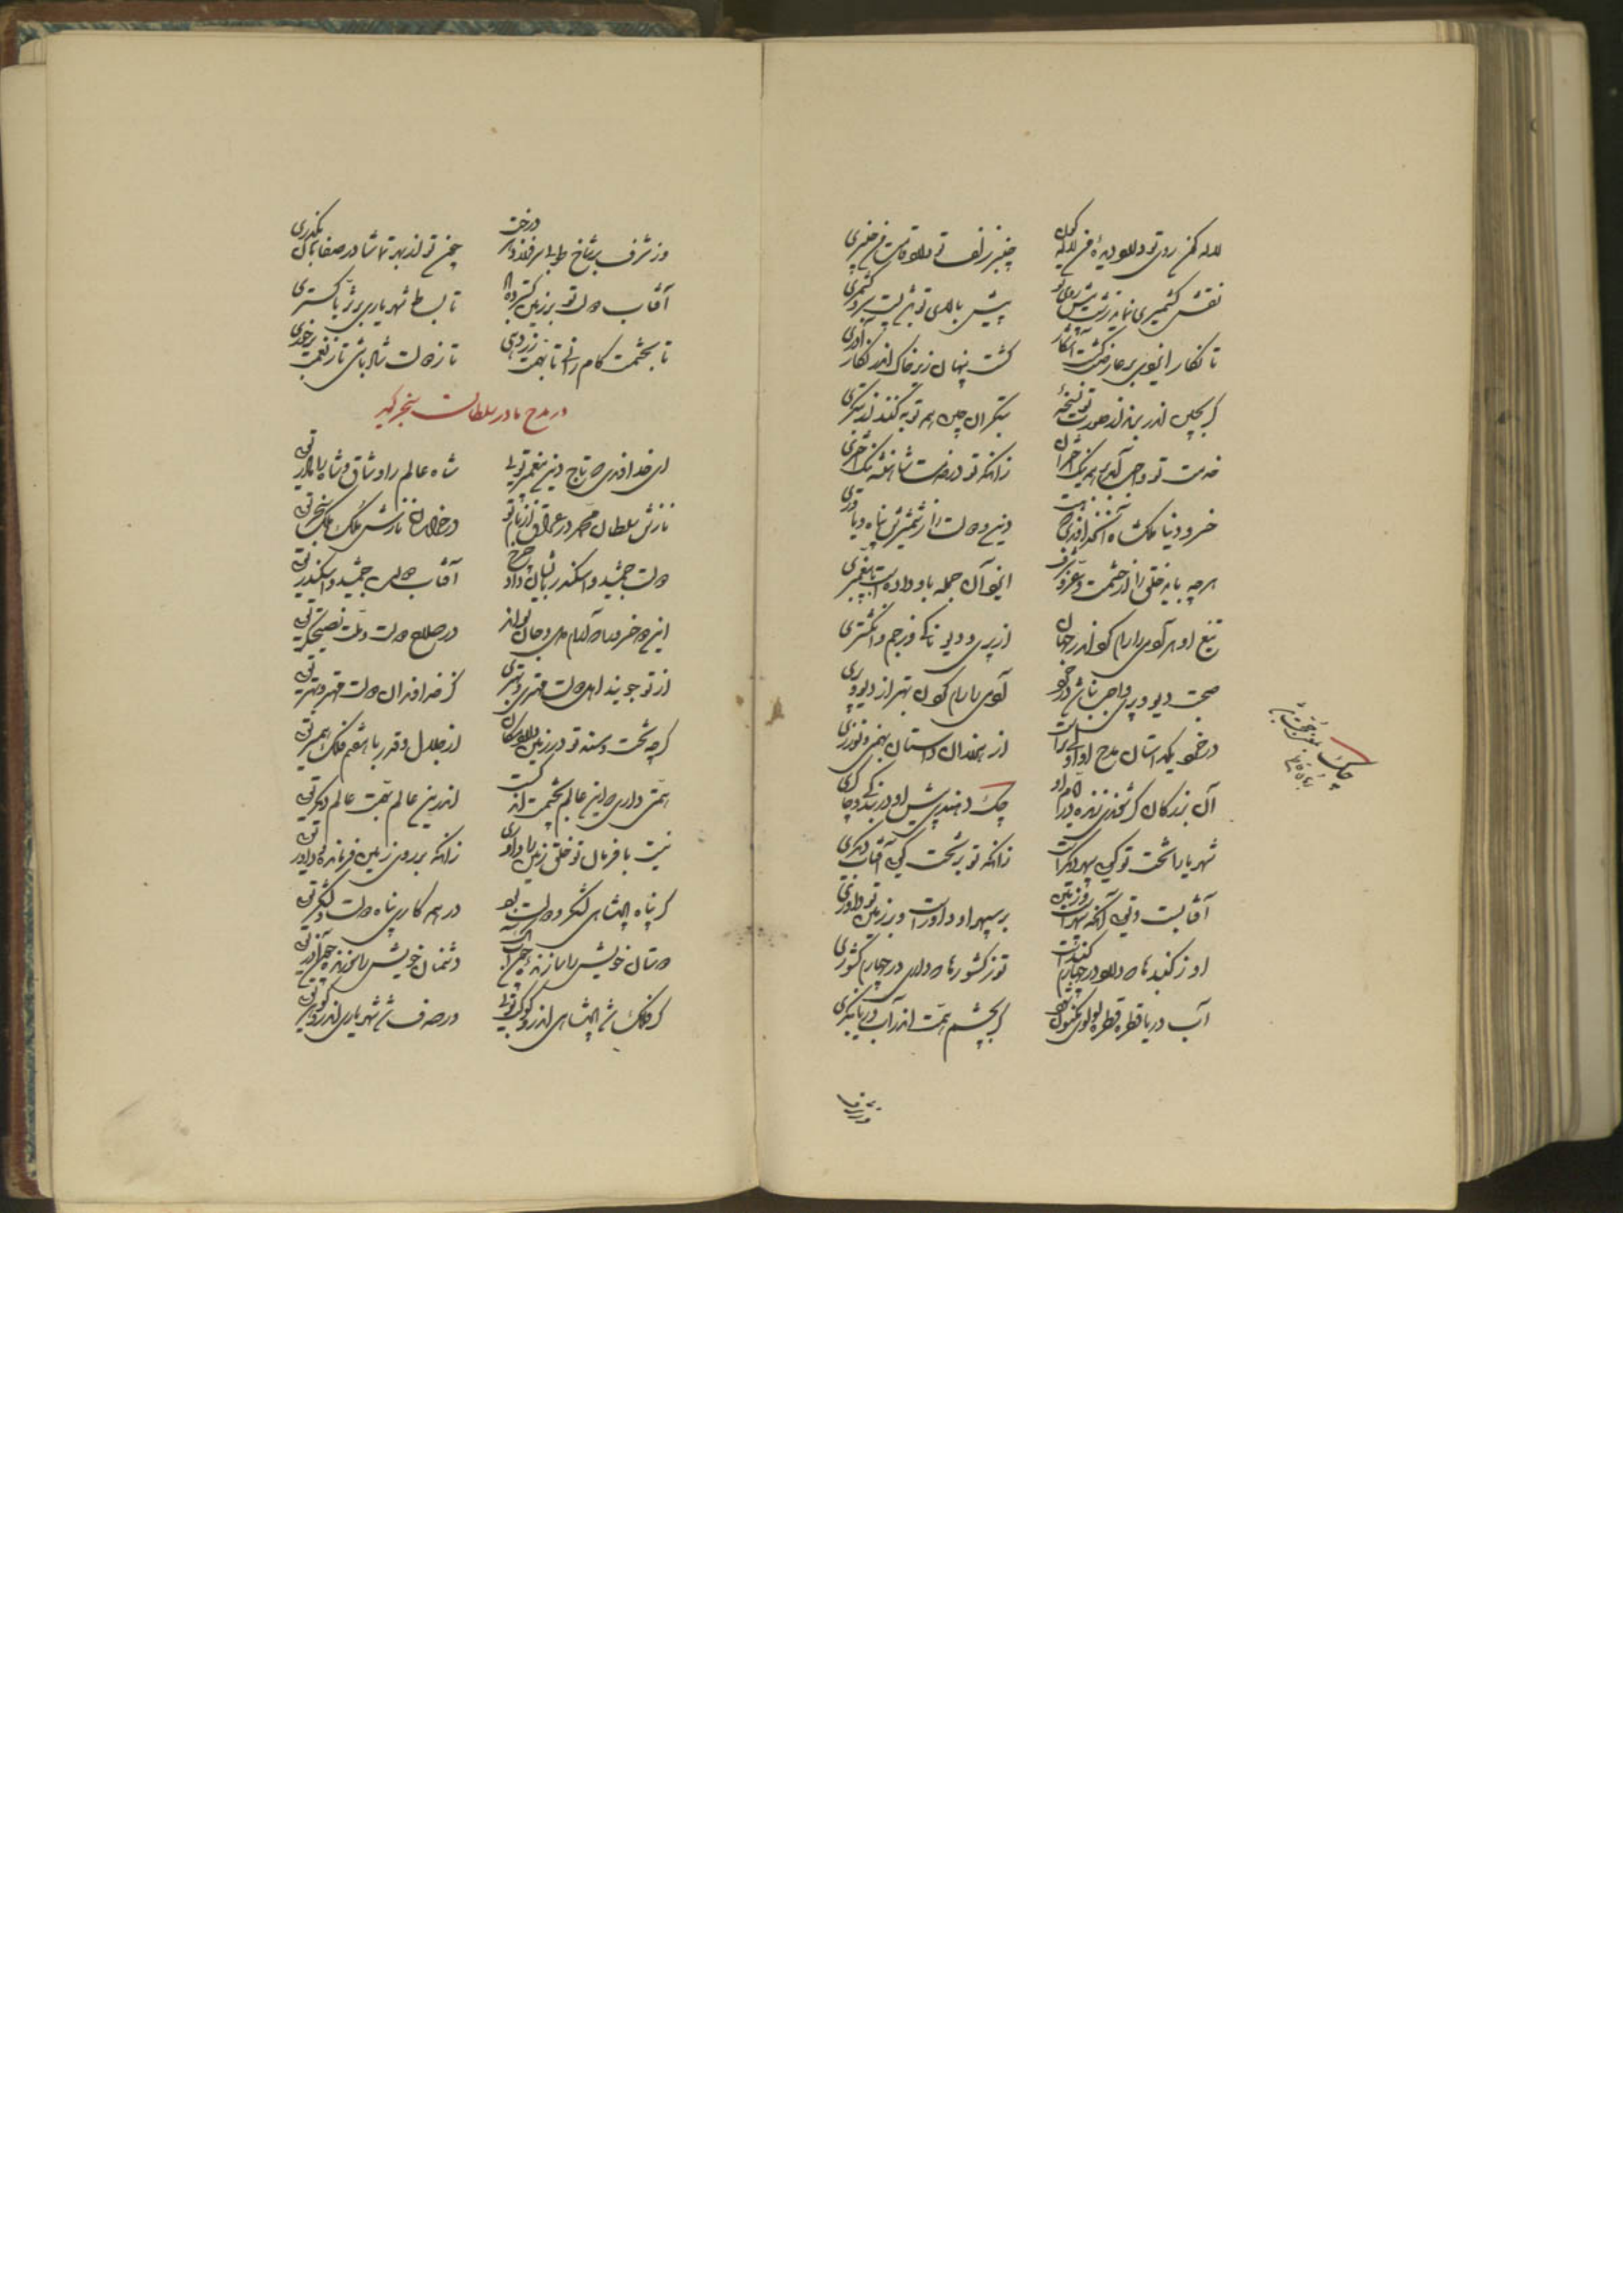 لاله گون روی تو دارد دیدهٔ من لاله گون
چنبر زلف تو دارد قامت من چنبری
نقش کشمیری نماید زشت پیش روی تو
پیش بالای تو باشد پست سرو کشمری
تا نگار ایزدی بر عارضت گشت آشکار
گشت پنهان زیر خاک اندر نگار آزری
گر بچین اندر برند از صورت تو نسخهٔ
بتگران چین همه توبه کنند از بتگری
خدمت تو واجب آمد بر همه نیک اختران
زانکه تو در خدمت شاهنشه نیک اختری
خسرو دنیا ملکشاه آن خداوندی که هست
دین و دولت را ز شمشیرش پناه و یاوری
هرچه باید خلق را از حشمت و عز و شرف
ایزد آن جمله باو دادست ناپیغمبری
تیغ او هر آدمی را رام کرد اندر جهان
از پری و دیو ناکرده ز جم و انگشتری
صحبت دیو و پری واجب نباشد در خرد
آدمی را رام کردن بهتر از دیو و پری
در خرد یک داستان از مدح او اولیتر است
از هنرمندان و داستان بهمن و نوذری
آن بزرگان گر شوندی زنده در ایام او
چک دهندی پیش او در بندگی و چاکری
شهریارا تخت تو گویی سپهر دیگر است
زانکه تو بر تخت گویی آفتاب دیگری
آفتابست و تویی آنکه شهره‌اند روز و شب
بر سپهر او داور است و بر زمین تو داوری
او ز گنبدها که دارد در چهارم گنبد است
تو ز کشورها که داری در چهارم کشوری
آب دریا قطره قطره لولوی مکنون شود
گر بچشم همت اندر آب دریا بنگری
چک
وز شرف بر شاخ طوبی سرفرازد هر درخت
چون تو اندر بهر تماشا در صفاهان بگذری
آفتاب دولت تو بر زمین گسترده باد
تا بساط شهریاری بر ثریا گستری
تا بحشمت کام رانی تا بهمت زر دهی
تا ز دولت شاد باشی تا ز نعمت برخوری
در مدح مادر سلطان سنجر گوید
ای خداوندی که تاج دین پیغمبر تویی
شاه عالم را و شاه شاه را مادر تویی
نازش سلطان محمد در عراق از نام تو
در خراسان نازش ملک ملک سنجر تویی
دولت جمشید و اسکندر بایشان داد چرخ
آفتاب دولت جمشید و اسکندر تویی
این دو خسرو ماه آرام دل و جان تواند
در صلاح دولت و ملت نصیحتگر تویی
از تو جویند اهل دولت مهتری و بهتری
کز خداوندان دولت مهتر و بهتر تویی
گرچه تخت و مسند تو در زمین دارد مکان
از جلال و قدر با هفتم فلک همبر تویی
همتی داری که این عالم بچشمت اندکست
اندرین عالم بهمت عالم دیگر تویی
نیست با فرمان تو خلق زمین را داوری
زانکه بر روی زمین فرمانده و داور تویی
گر پناه پادشاهی لشکر و دولت بود
در همه کاری پناه دولت و لشکر تویی
دوستان خویش را سازنده چون آب
دشمنان خویش را سوزنده چون آذر تویی
گر فلک شد پادشاهی اندرو کوکب تویی
ور صدف شد شهریاری اندرو گوهر تویی